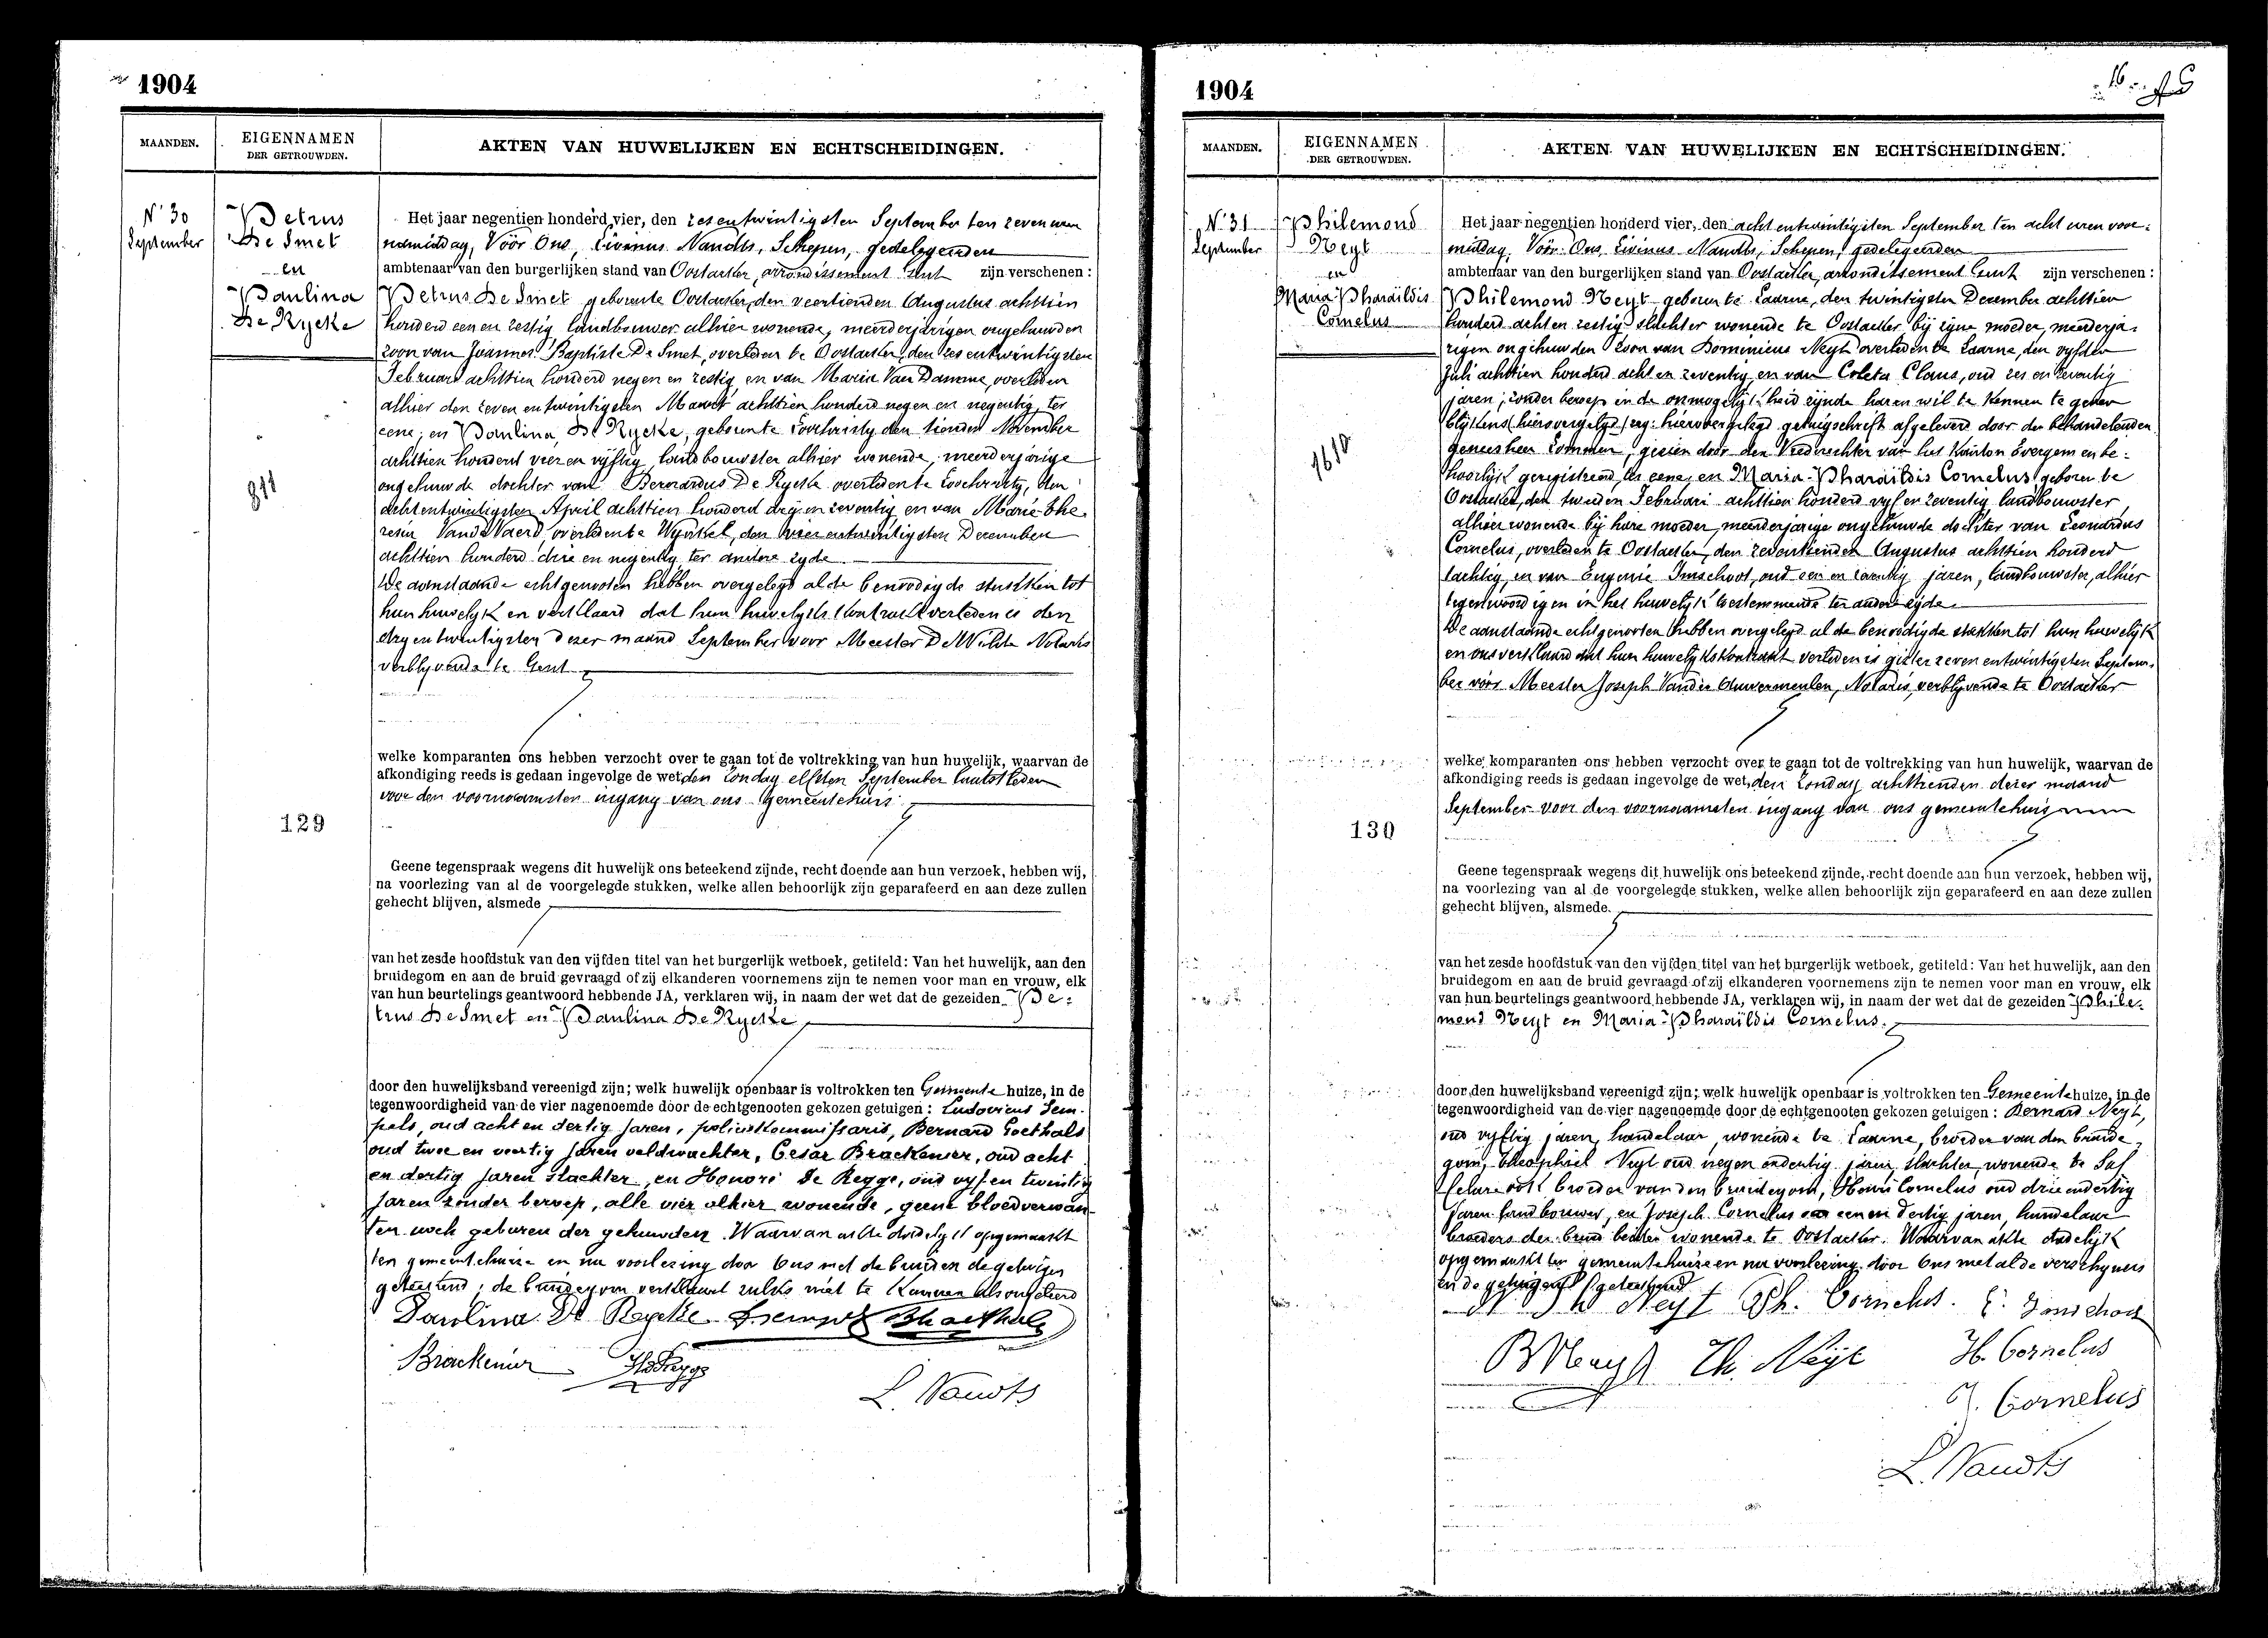 1904
MAANDEN.
EIGENNAMEN
DER GETROUWDEN.
AKTEN VAN HUWELIJKEN EN ECHTSCHEIDINGEN.
N° 30
September
Petrus
De Smet
en
Paulina
De Rycke
811
129
Het jaar negentien honderd vier, den zesentwintigsten September ten zeven uren
namiddag, Vóór Ons, Livinus Naudts, Schepen, gedelegeerden
ambtenaar van den burgerlijken stand van Oostacker, arrondissement Gent zijn verschenen:
Petrus De Smet geboren te Oostacker, den veertienden Augustus achttien
honderd een en zestig, landbouwer alhier wonende, meerderjarigen ongehuwden
zoon van Joannes Baptiste De Smet, overleden te Oostacker, den zes entwintigsten
Februari achttien honderd negen en zestig en van Maria Van Damme, overleden
alhier den zeven entwintigsten Maart achttien honderd negen en negentig, ter
eene; en Paulina De Rycke, geboren te Loochristy den tienden November
achttien honderd vier en vyftig, landbouwster alhier wonende, meerderjarige
ongehuwde dochter van Bernardus De Rycke overleden te Loochristy, den
achtentwintigsten April achttien honderd drij en zeventig en van Marie The-
resia Vande Vaerd, overleden te Wynkel, den vier entwintigsten December
achttien honderd drie en negentig, ter andere zyde
De aanstaande echtgenooten hebben overgelegd al de benoodigde stukken tot
hun huwelyk en verklaard dat hun huwelyks kontrakt verleden is den
dry entwintigsten dezer maand September voor Meester De Wilde Notaris
verblyvende te Gent
welke komparanten ons hebben verzocht over te gaan tot de voltrekking van hun huwelijk, waarvan de
afkondiging reeds is gedaan ingevolge de wet, den Zondag elfsten September laatstleden
voor den voornaamsten ingang van ons Gemeentehuis
Geene tegenspraak wegens dit huwelijk ons beteekend zijnde, recht doende aan hun verzoek, hebben wij,
na voorlezing van al de voorgelegde stukken, welke allen behoorlijk zijn geparafeerd en aan deze zullen
gehecht blijven, alsmede
van het zesde hoofdstuk van den vijfden titel van het burgerlijk wetboek, getiteld: Van het huwelijk, aan den
bruidegom en aan de bruid gevraagd of zij elkanderen voornemens zijn te nemen voor man en vrouw, elk
van hun beurtelings geantwoord hebbende JA, verklaren wij, in naam der wet dat de gezeiden Pe-
trus De Smet en Paulina De Rycke
door den huwelijksband vereenigd zijn; welk huwelijk openbaar is voltrokken ten Gemeente huize, in de
tegenwoordigheid van de vier nagenoemde door de echtgenooten gekozen getuigen: Ludovicus Sem-
pels, oud acht en dertig jaren, policiekommissaris, Bernard Goethals
oud twee en veertig jaren veldwachter, Cesar Brackenier, oud acht
en dertig jaren slachter, en Honoré De Regge, oud vyf en twintig
jaren zonder beroep, alle vier alhier wonende, geene bloedverwan-
ten noch geburen der gehuwden. Waarvan akte dadelyk opgemaakt
ten gemeentehuize en na voorlezing door Ons met de bruid en de getuigen
geteekend; de bruidegom verklaard zulks niet te kunnen als ongeleerd
Paulina De Rycke L. Sempels B. Goethals
Brackenier H. De Regge
L. Naudts
1904
16
MAANDEN.
EIGENNAMEN
DER GETROUWDEN.
AKTEN VAN HUWELIJKEN EN ECHTSCHEIDINGEN.
N° 31
September
Philemond
Neyt
en
Maria Pharaïldis
Cornelus
1610
130
Het jaar negentien honderd vier, den acht entwintigsten September ten acht uren voor-
middag, Vóór Ons, Livinus Naudts, Schepen, gedelegeerden
ambtenaar van den burgerlijken stand van Oostacker, arrondissement Gent zijn verschenen:
Philemond Neyt geboren te Laarne, den twintigsten December achttien
honderd acht en zestig slachter wonende te Oostacker bij zijne moeder, meerderja-
rigen ongehuwden zoon van Dominicus Neyt overleden te Laarne, den vyfden
Juli achttien honderd acht en zeventig en van Coleta Claus, oud zes en zeventig
jaren, zonder beroep in de onmogelijkheid zijnde haren wil te kennen te geven
blijkens hiervergelegd getuigschrift afgeleverd door den behandelenden
geneesheer gezien door den Vrederechter van het Kanton Evergem en be-
hoorlijk geregistreerd, ter eene; en Maria-Pharaïldis Cornelus, geboren te
Oostacker, den tweeden Februari achttien honderd vyf en zeventig landbouwster,
alhier wonende bij hare moeder, meerderjarige ongehuwde dochter van Leonardus
Cornelus, overleden te Oostacker, den zeventienden Augustus achttien honderd
tachtig, en van Eugenie Imschoot, oud een en zeventig jaren, landbouwster, alhier
tegenwoordig en in het huwelijk toestemmende ter andere zijde
De aanstaande echtgenooten hebben overgelegd al de benoodigde stukken tot hun huwelijk
en ons verklaard dat hun huwelijkskontrakt verleden is gister zeven entwintigsten Septem-
ber vóór Meester Joseph Vander Auwermeulen, Notaris, verblijvende te Oostacker
welke komparanten ons hebben verzocht over te gaan tot de voltrekking van hun huwelijk, waarvan de
afkondiging reeds is gedaan ingevolge de wet, den Zondag achttienden dezer maand
September voor den voornaamsten ingang van ons gemeentehuis
Geene tegenspraak wegens dit huwelijk ons beteekend zijnde, recht doende aan hun verzoek, hebben wij,
na voorlezing van al de voorgelegde stukken, welke allen behoorlijk zijn geparafeerd en aan deze zullen
gehecht blijven, alsmede
van het zesde hoofdstuk van den vijfden titel van het burgerlijk wetboek, getiteld: Van het huwelijk, aan den
bruidegom en aan de bruid gevraagd of zij elkanderen voornemens zijn te nemen voor man en vrouw, elk
van hun beurtelings geantwoord hebbende JA, verklaren wij, in naam der wet dat de gezeiden Phile-
mond Neyt en Maria-Pharaïldis Cornelus.
door den huwelijksband vereenigd zijn; welk huwelijk openbaar is voltrokken ten Gemeentehuize, in de
tegenwoordigheid van de vier nagenoemde door de echtgenooten gekozen getuigen: Bernard Neyt,
oud vyftig jaren, handelaar, wonende te Laarne, broeder van den bruide-
gom, Theophiel Neyt oud negen endertig jaren, slachter, wonende te Saf
felare ook broeder van den bruidegom, Henri Cornelus oud drie endertig
jaren landbouwer, en Joseph Cornelus oud een en dertig jaren, handelaar
broeders der bruid beiden wonende te Oostacker. Waarvan akte dadelijk
opgemaakt ten gemeentehuize en na voorlezing door Ons met al de verschijners
en de getuigen geteekend
Ph Neyt Ph. Cornelus. E. Imschoot
B Neyt Th. Neyt H. Cornelus
J. Cornelus
L. Naudts